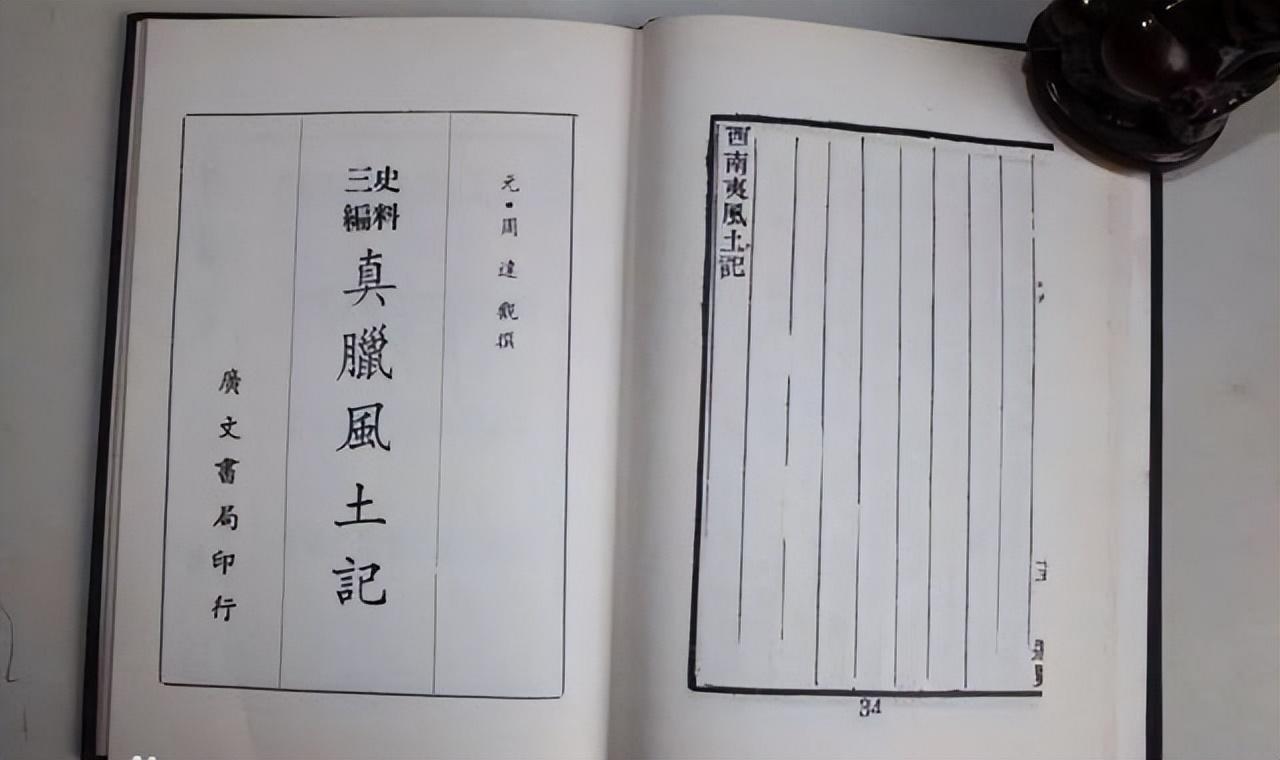 西南夷風土記
34
元·周達觀撰
史料
三編
真臘風土記
廣文書局印行